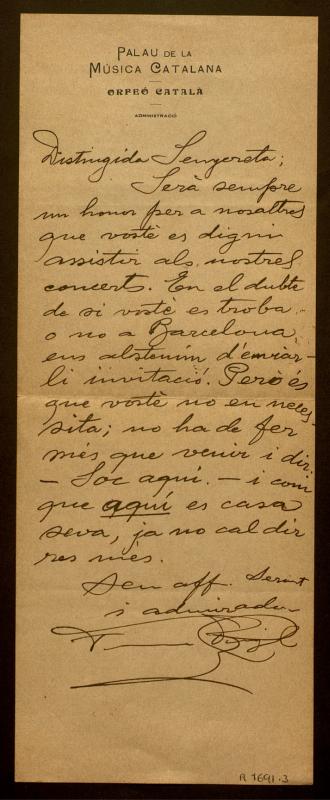 PALAU DE LA
MÚSICA CATALANA
ORFEÓ CATALÀ
ADMINISTRACIÓ
Distingida Senyoreta;
Serà sempre
un honor per a nosaltres
que vostè es digni
assistir als nostres
concerts. En el dubte
de si vostè es troba
o no a Barcelona,
ens abstenim d'enviar-
li invitació. Però és
que vostè no en neces-
sita; no ha de fer
més que venir i dir.
- Soc aquí. - i com
que aquí es casa
seva, ja no cal dir
res més.
Seu aff. Servent
i admirador
R 1691-3